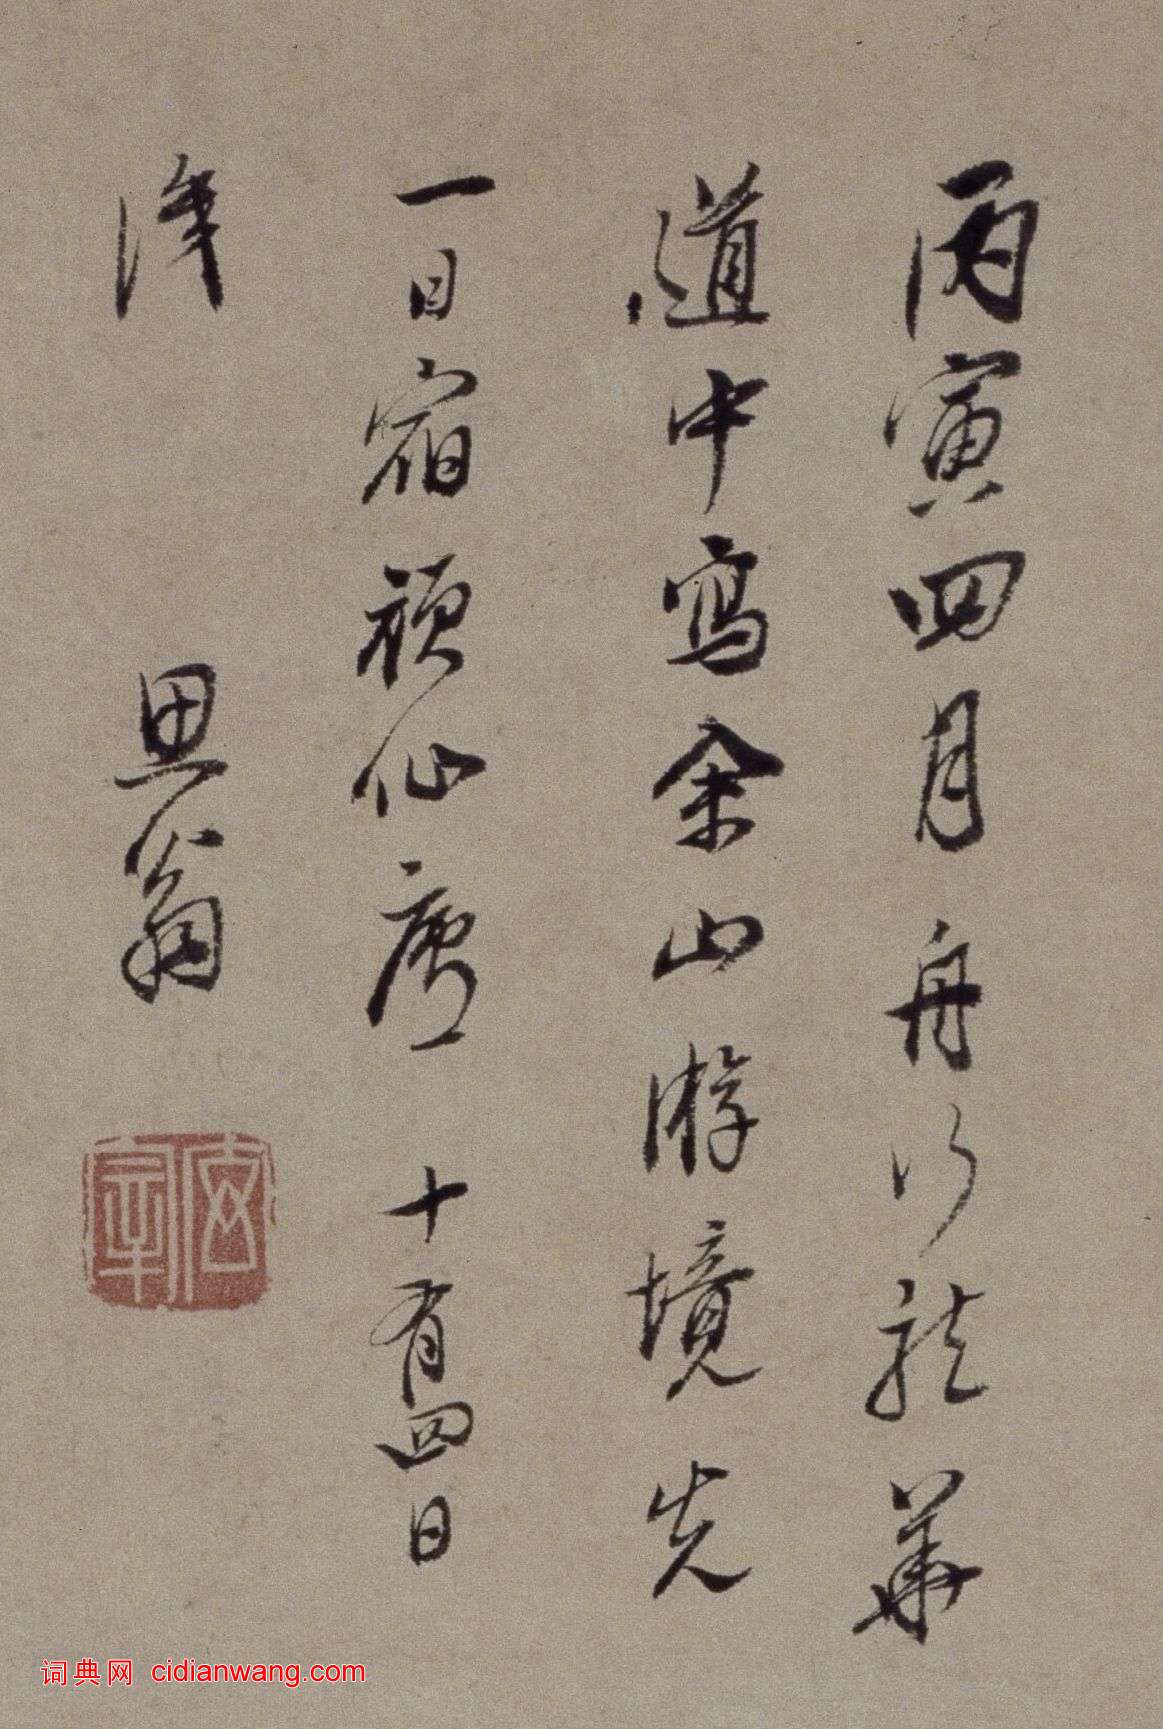 丙寅四月舟行龍華
道中寫佘山游境先
一日宿頑仙廬十有四日
識 思翁
词典网 cidianwang.com